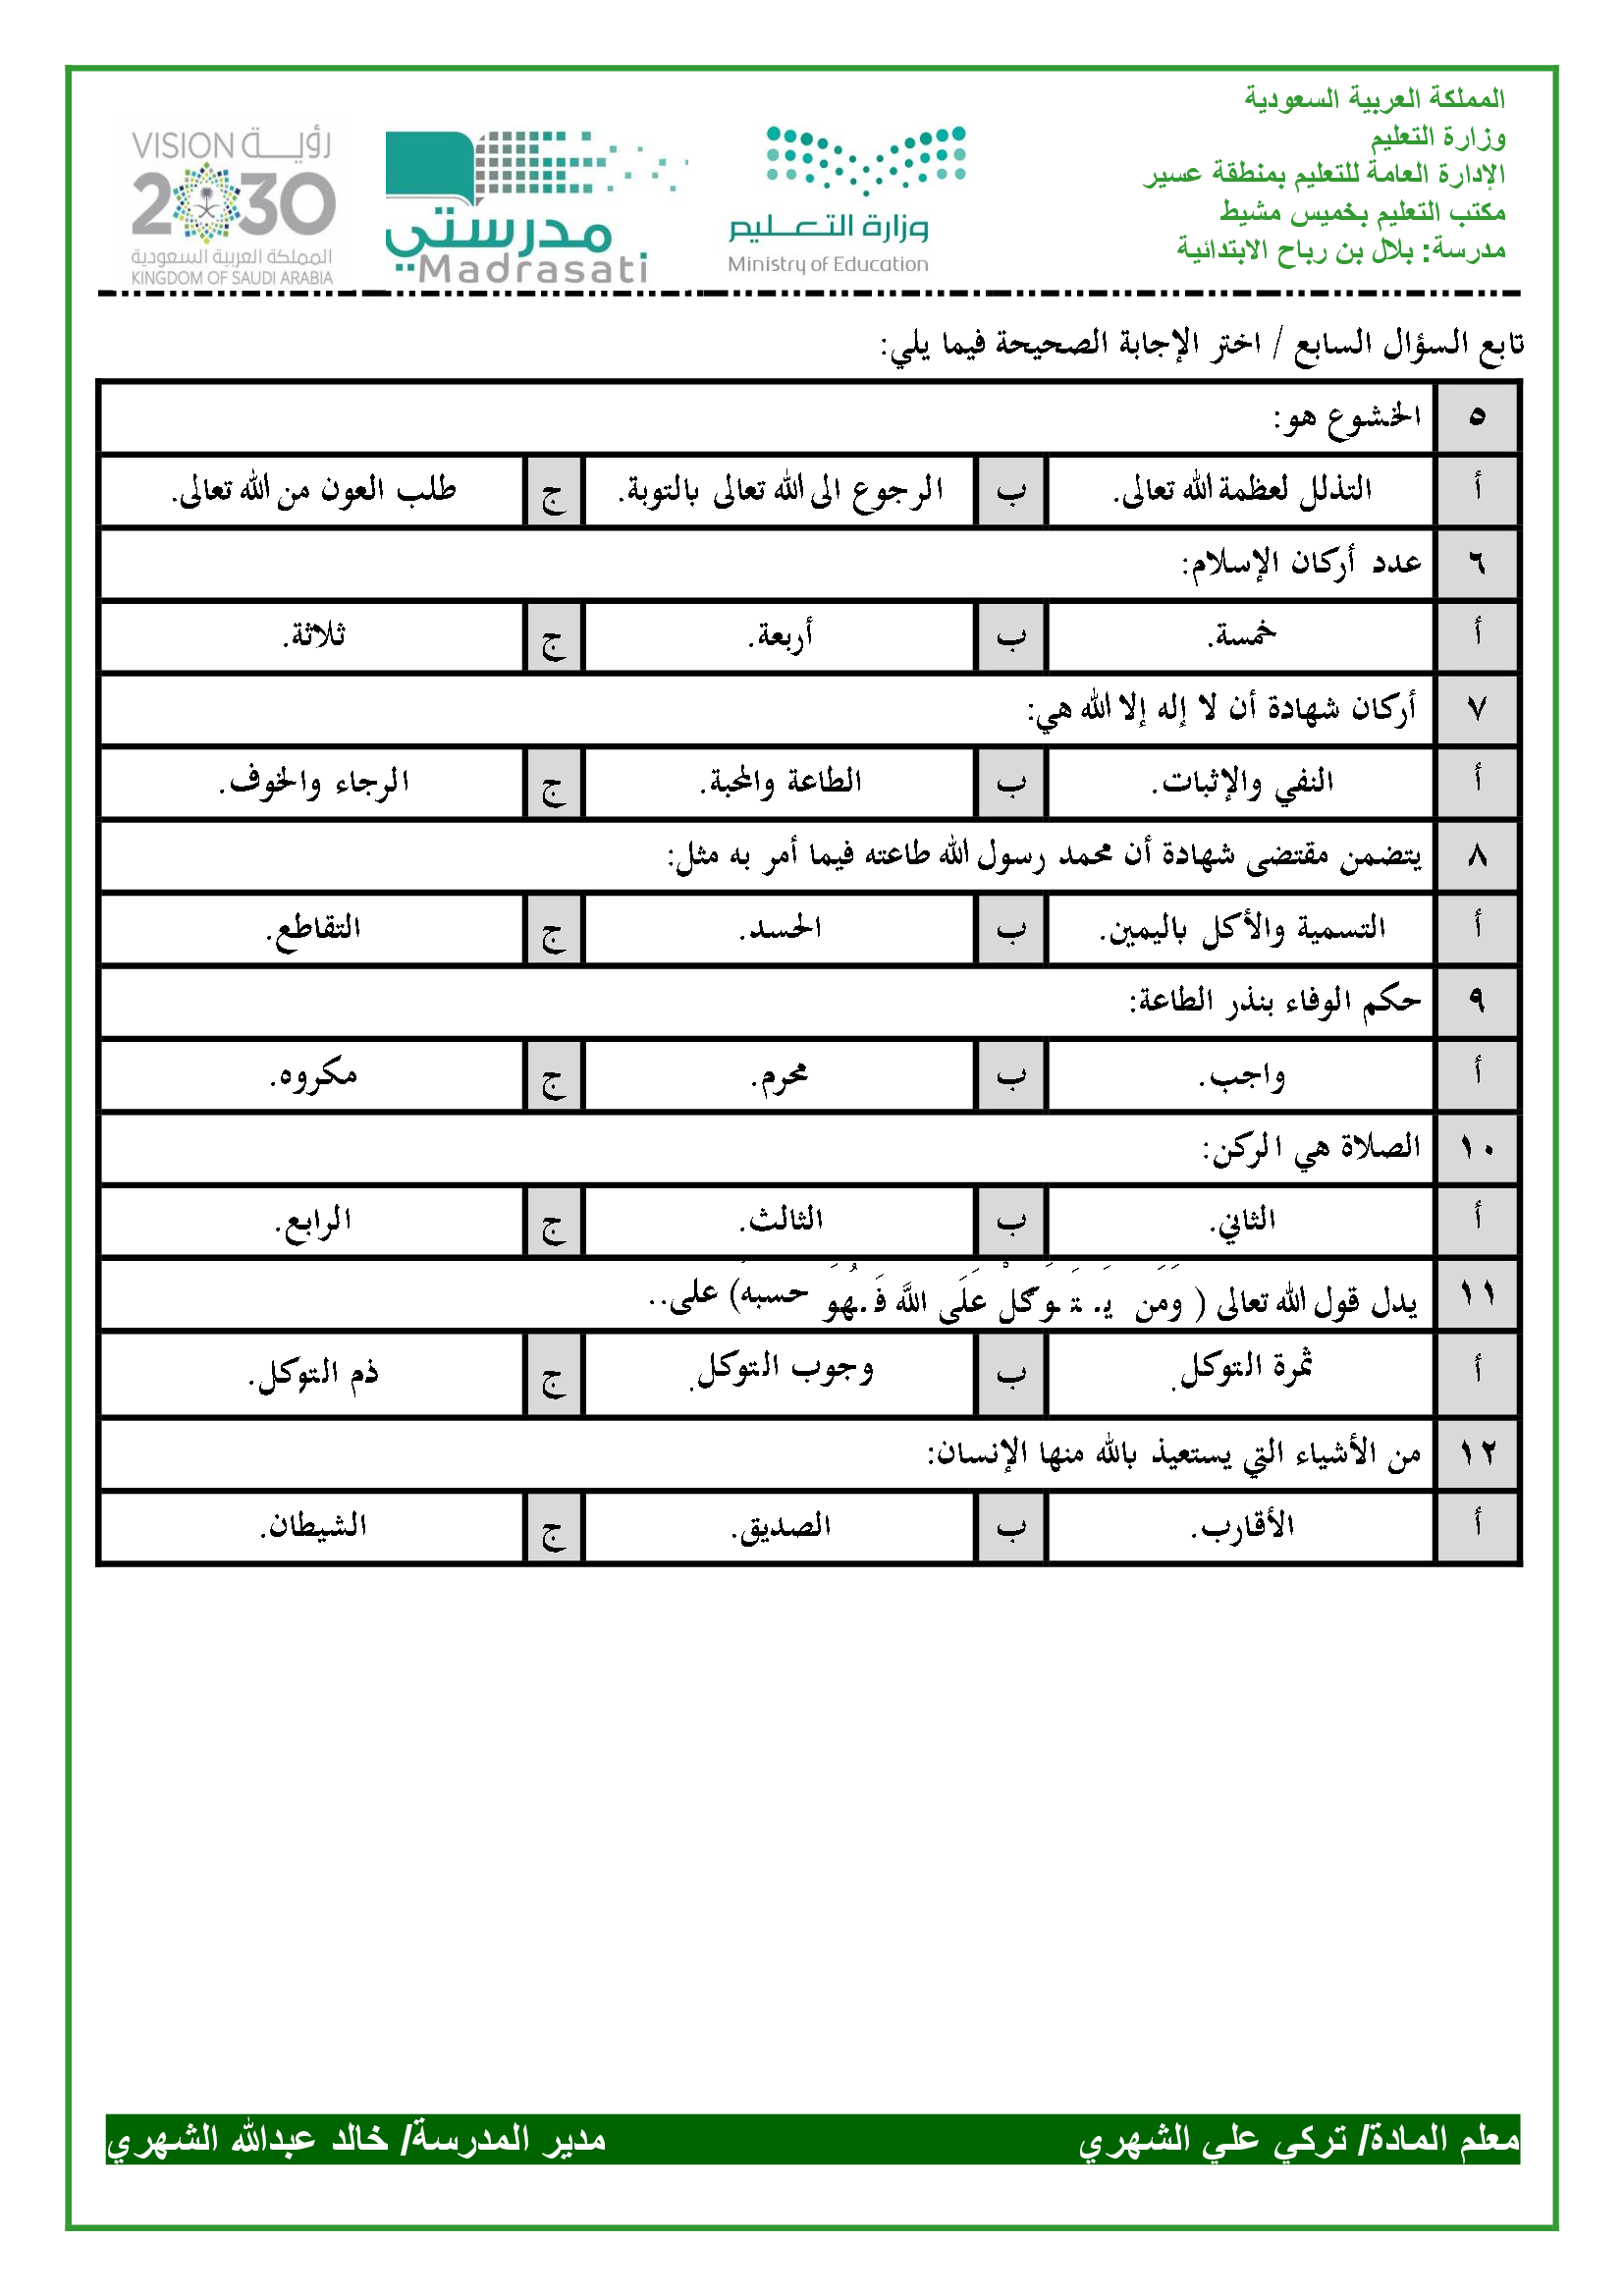 المملكة العربية السعودية
وزارة التعليم
الإدارة العامة للتعليم بمنطقة عسير
مكتب التعليم بخميس مشيط
مدرسة: بلال بن رباح الابتدائية
وزارة التعليم
Ministry of Education
مدرستي
Madrasati
VISION رؤية
2030
المملكة العربية السعودية
KINGDOM OF SAUDI ARABIA
تابع السؤال السابع / اختر الإجابة الصحيحة فيما يلي:
٥ الخشوع هو:
أ التذلل لعظمة الله تعالى. ب الرجوع الى الله تعالى بالتوبة. ج طلب العون من الله تعالى.
٦ عدد أركان الإسلام:
أ خمسة. ب أربعة. ج ثلاثة.
٧ أركان شهادة أن لا إله إلا الله هي:
أ النفي والإثبات. ب الطاعة والمحبة. ج الرجاء والخوف.
٨ يتضمن مقتضى شهادة أن محمد رسول الله طاعته فيما أمر به مثل:
أ التسمية والأكل باليمين. ب الحسد. ج التقاطع.
٩ حكم الوفاء بنذر الطاعة:
أ واجب. ب محرم. ج مكروه.
١٠ الصلاة هي الركن:
أ الثاني. ب الثالث. ج الرابع.
١١ يدل قول الله تعالى ( وَمَن يَتَوَكَّلْ عَلَى اللَّهِ فَهُوَ حسبهُ) على..
أ ثمرة التوكل. ب وجوب التوكل. ج ذم التوكل.
١٢ من الأشياء التي يستعيذ بالله منها الإنسان:
أ الأقارب. ب الصديق. ج الشيطان.
معلم المادة/ تركي علي الشهري مدير المدرسة/ خالد عبدالله الشهري